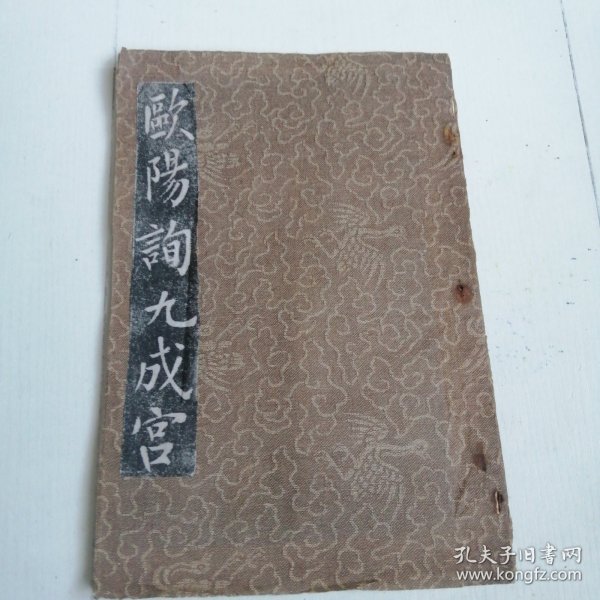 歐陽詢九成宮
孔夫子旧書网
www.kongfz.com